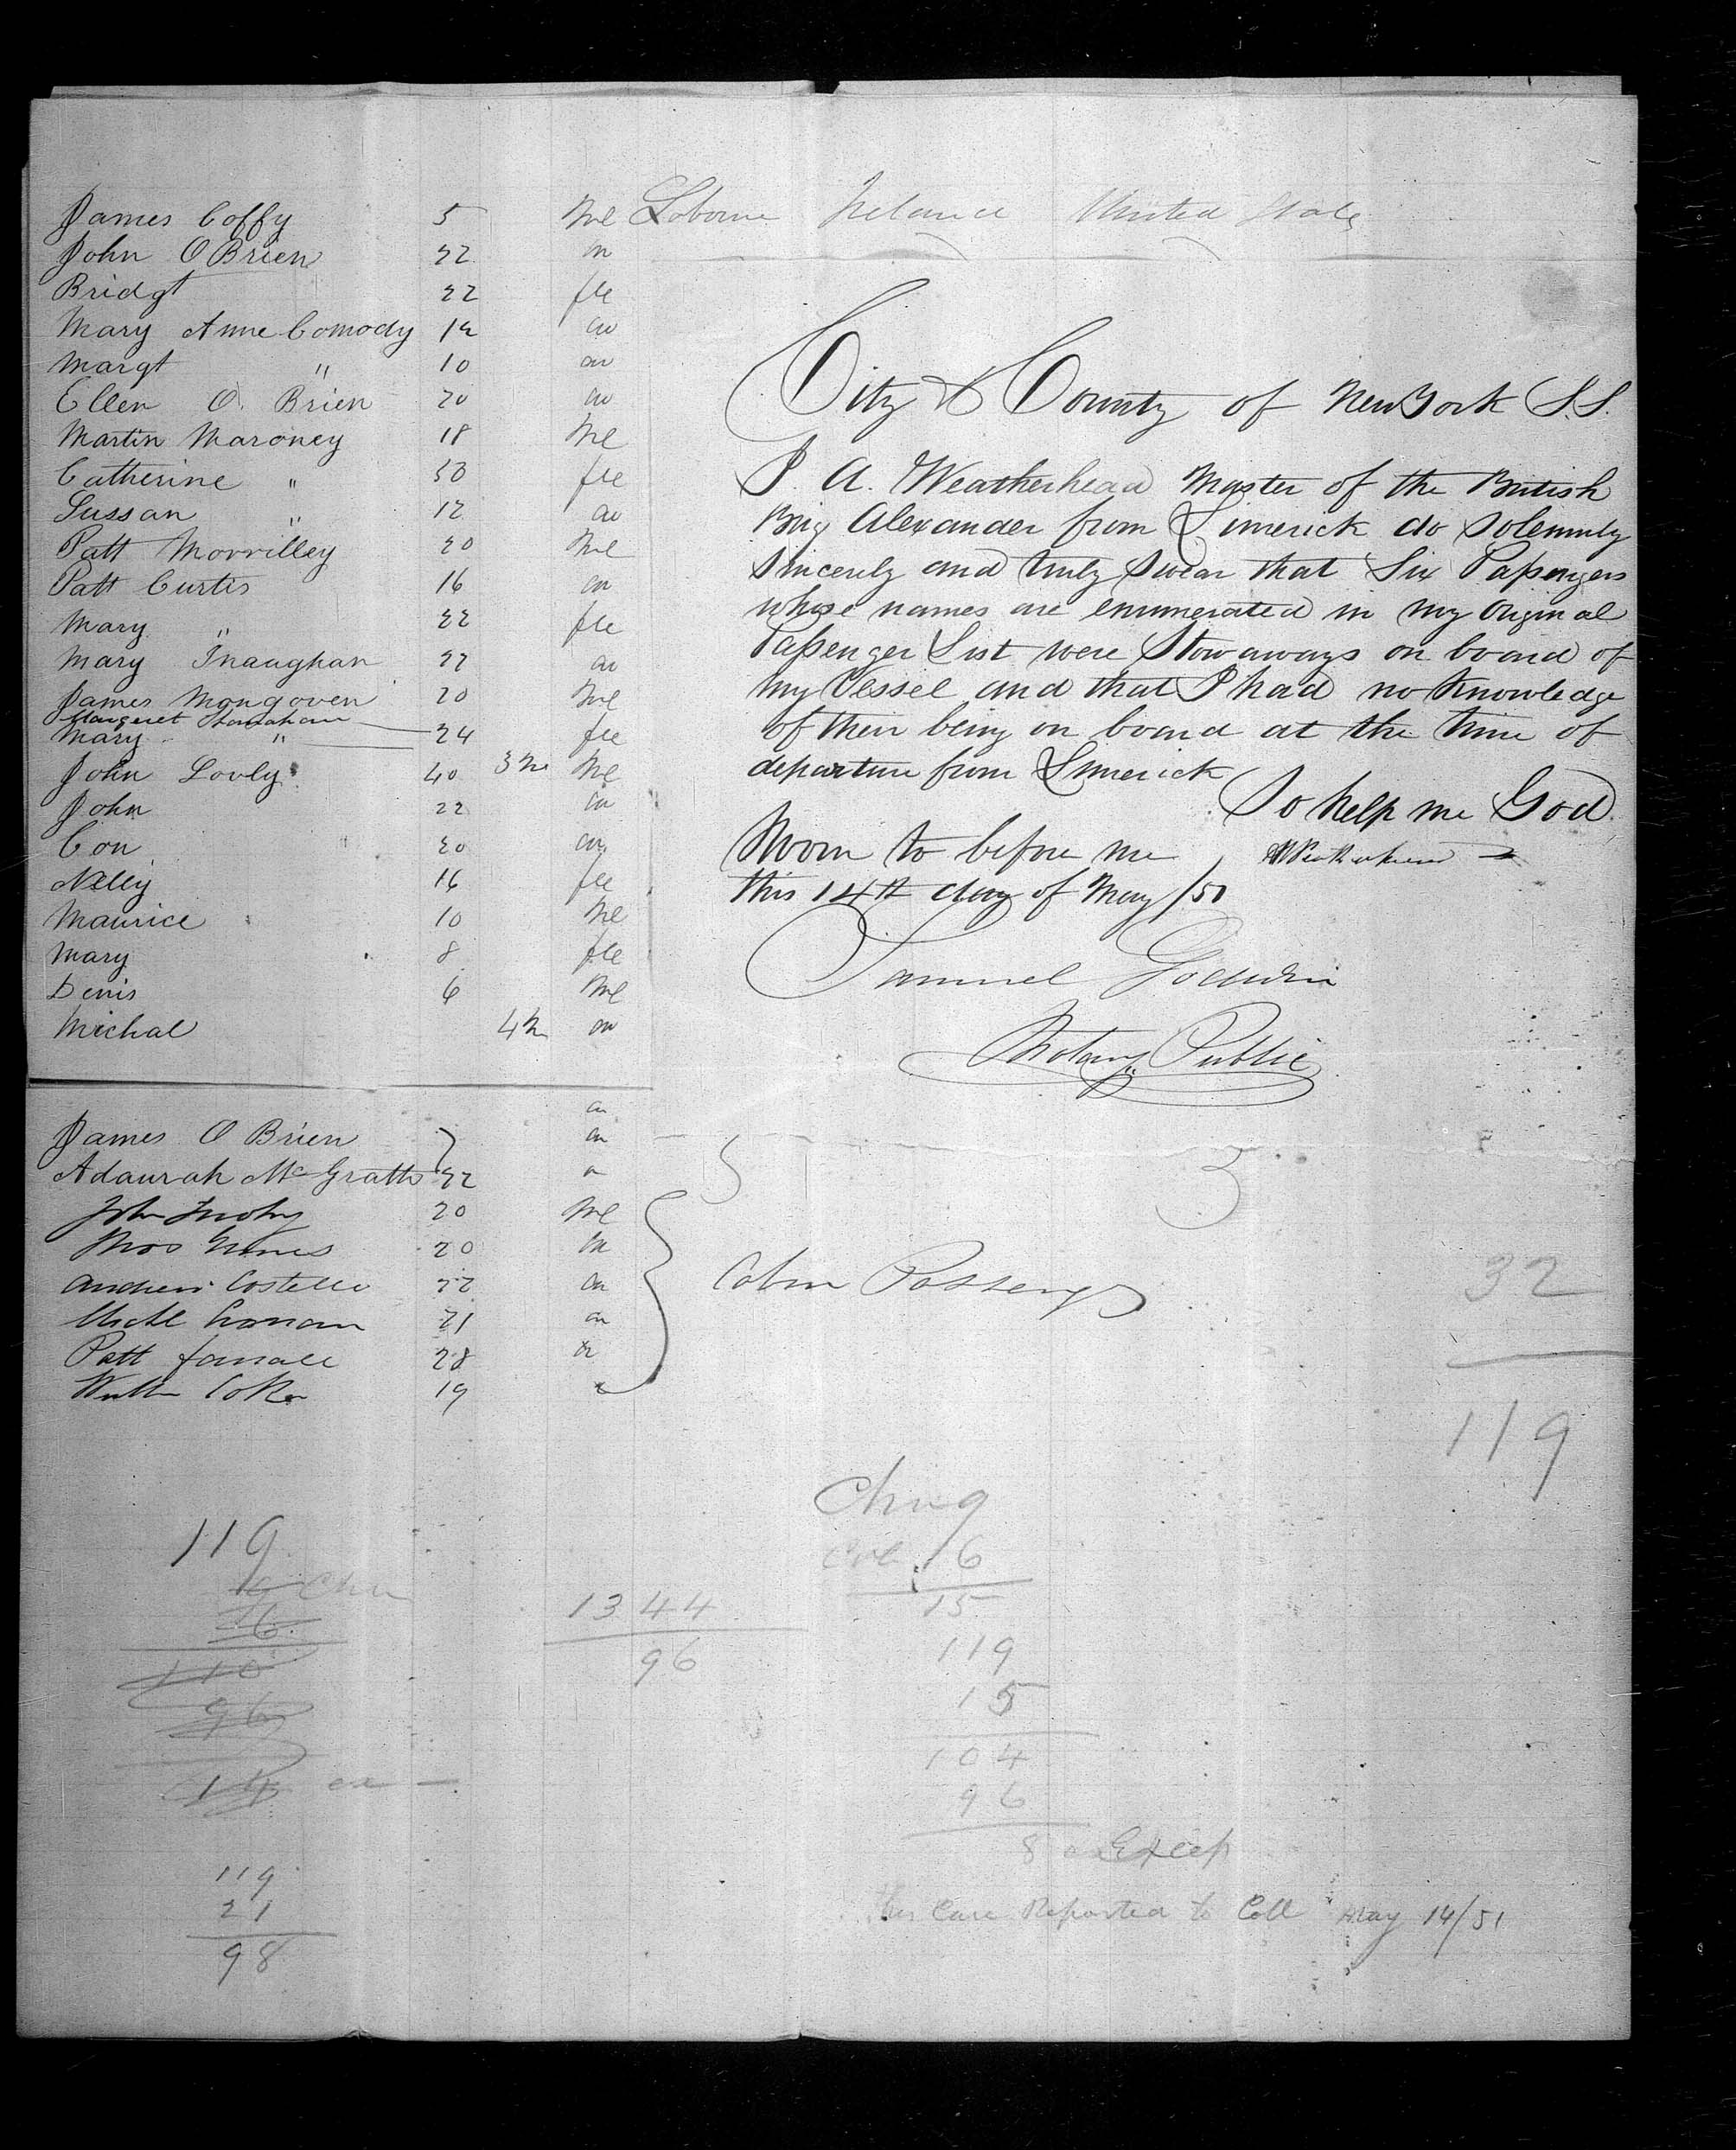 James Coffy 5 Mle Laborer Ireland United States
John O Brien 22 do
Bridgt 22 fle
Mary Anne Comody 12 do
Margt " 10 do
Ellen O. Brien 20 do
Martin Maroney 18 Mle
Catherine " 50 fle
Sussan " 12 do
Patt Morrilley 20 Mle
Patt Curtis 16 do
Mary " 22 fle
Mary Inaughan 22 do
James Mongoven 20 Mle
Margaret
Mary " 24 fle
John Lovly 40 3 Ms Mle
John 22 do
Con 20 do
Nelly 16 fle
Maurice 10 Mle
Mary 8 fle
Denis 6 Mle
Michal 4 M do
do
James O Brien do
Adaurah McGrath 22 do
John 20 Mle
Thos 20 do
Andrew Costello 22 do
Michl 21 do
Patt 28 do
19
Cabin Passengs
City & County of New York S.S.
I A. Weatherhead Master of the British
Brig Alexander from Limerick do solemnly
sincerely and truly swear that Six Passengers
whose names are enumerated in my original
Passenger List were Stowaways on board of
my Vessel and that I had no knowledge
of their being on board at the time of
departure from Limerick
So help me God.
Sworn to before me
this 14th day of May /51
Samuel Godwin
Notary Public
5 3
32
119
119
16
110
96
14
119
21
98
13 44
96
Ch 9
6
15
119
15
104
96
8 Excess
this Case Reported to Coll May 14/51